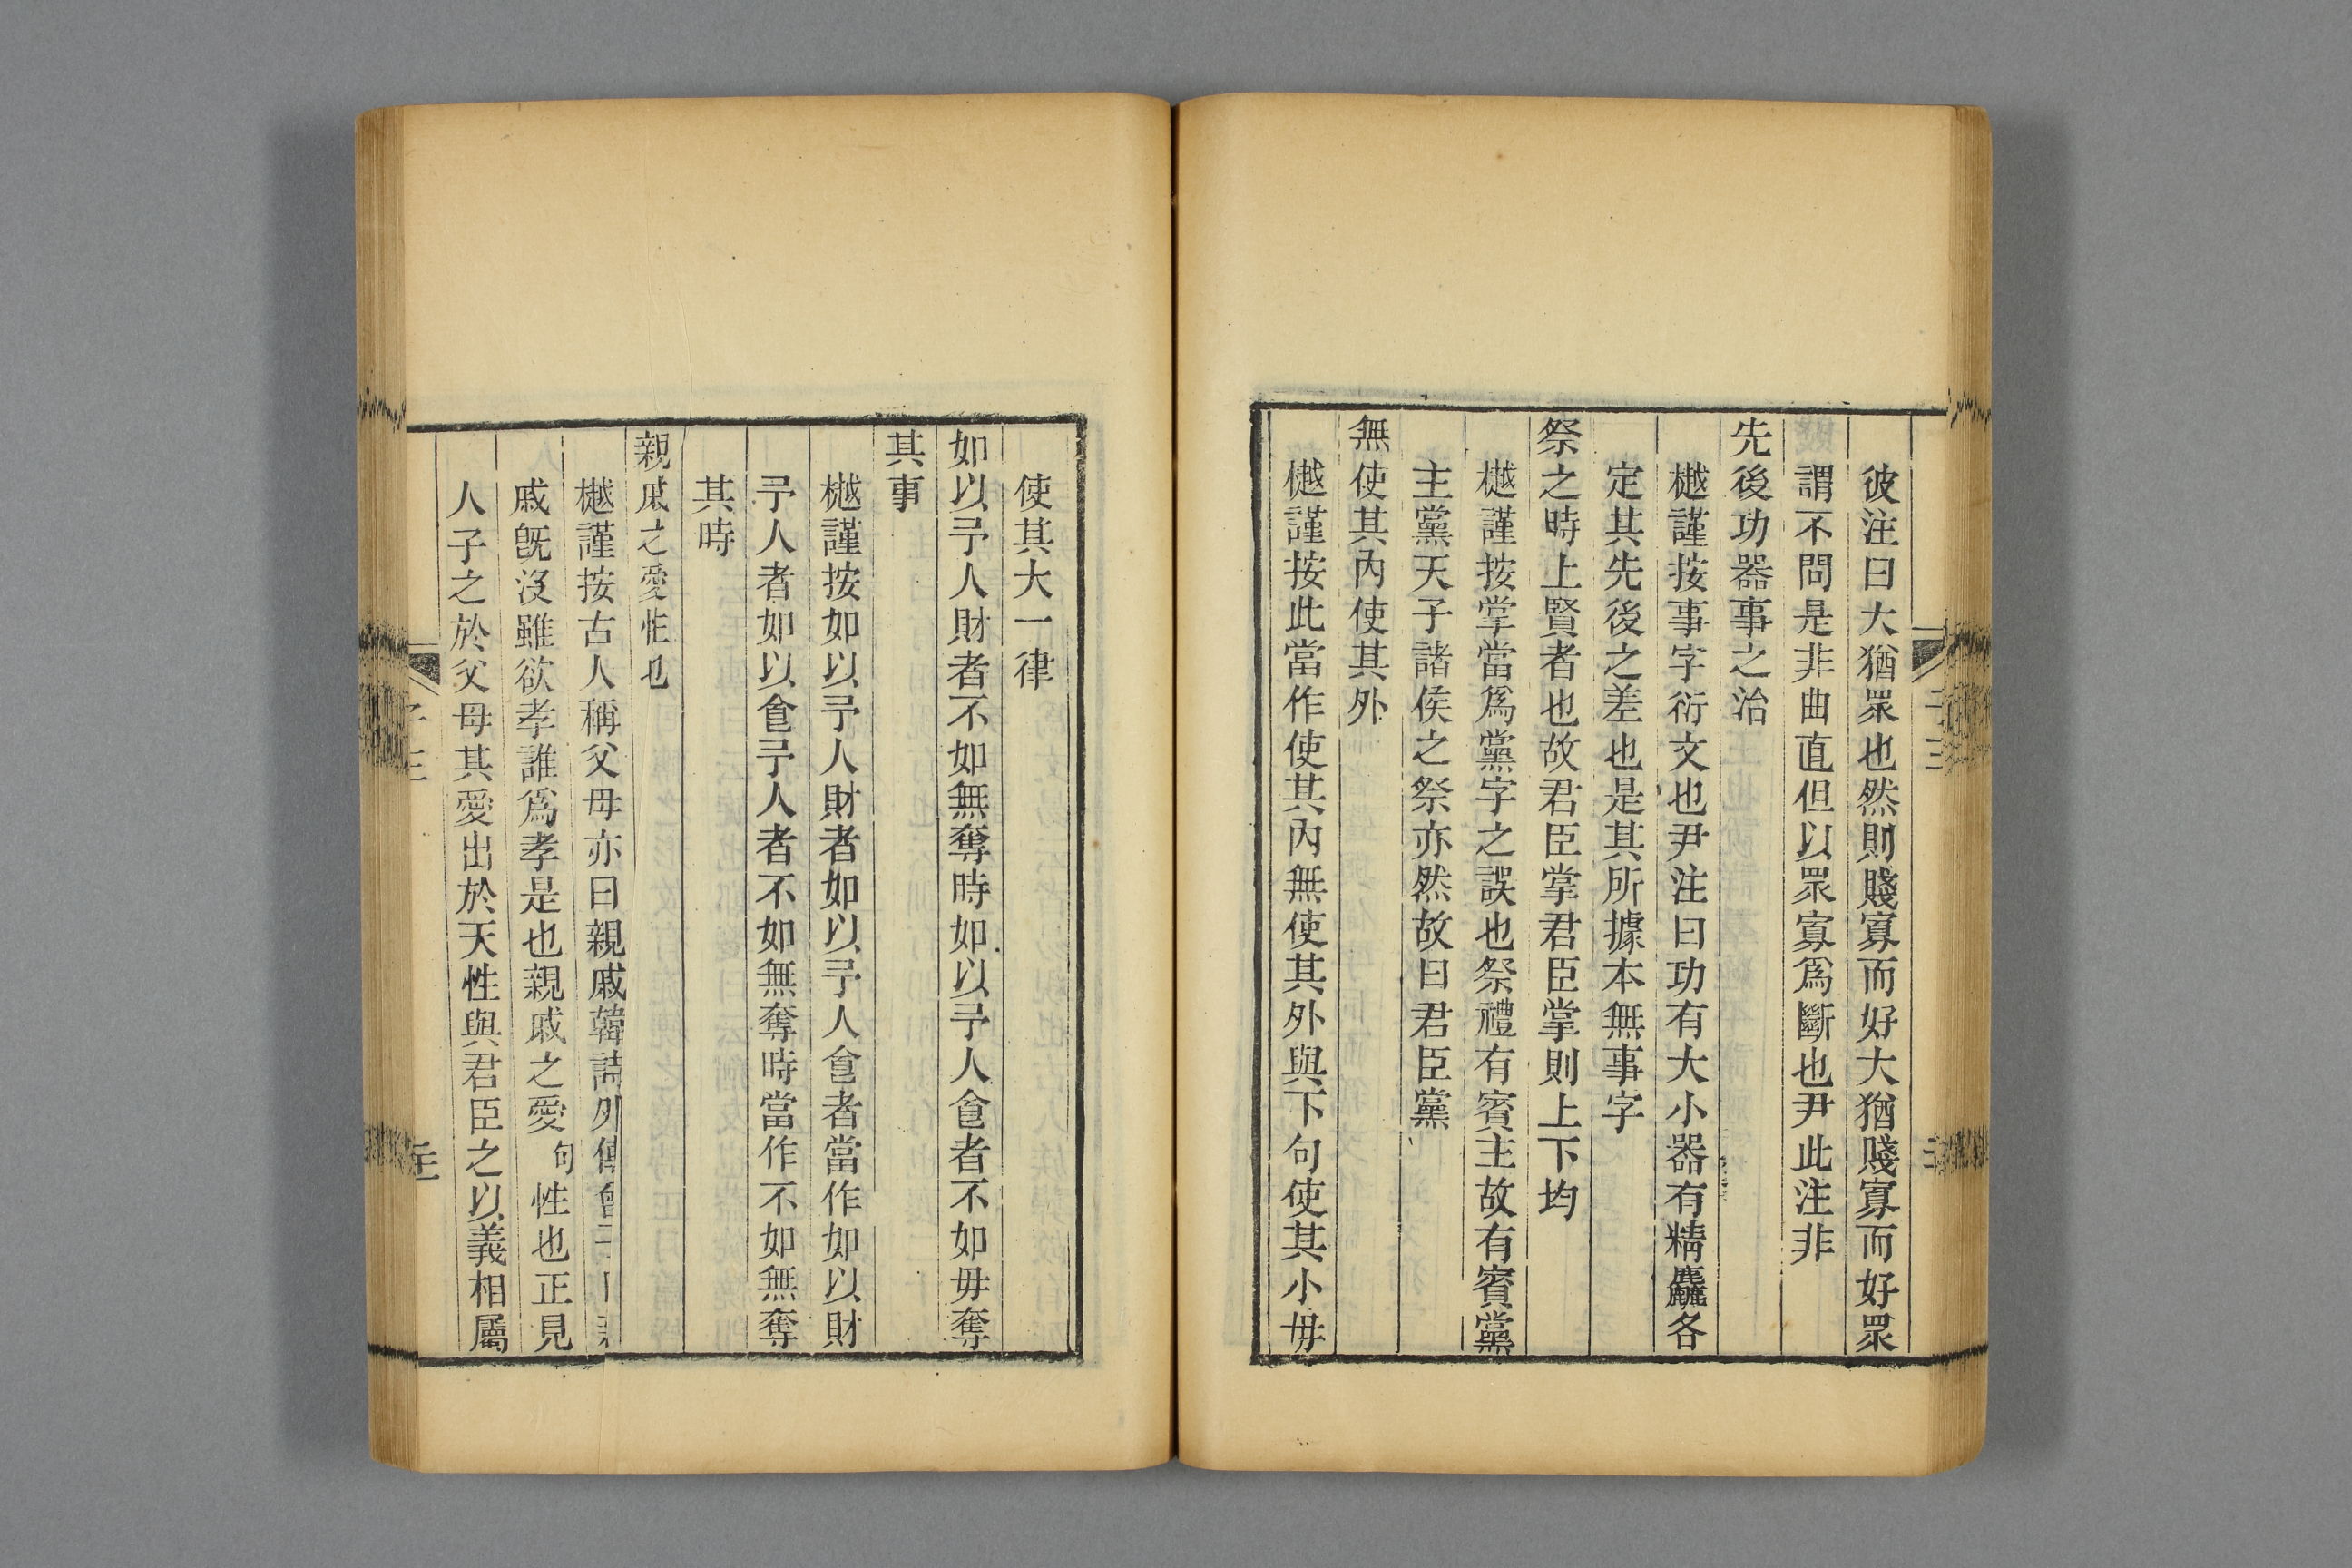 彼注曰大猶眾也然則賤寡而好大猶賤寡而好眾
謂不問是非曲直但以眾寡爲斷也尹此注非
先後功器事之治
樾謹按事字衍文也尹注曰功有大小器有精麤各
定其先後之差也是其所據本無事字
祭之時上賢者也故君臣掌君臣掌則上下均
樾謹按掌當爲黨字之誤也祭禮有賓主故有賓黨
主黨天子諸侯之祭亦然故曰君臣黨
無使其內使其外
樾謹按此當作使其內無使其外與下句使其小毋
使其大一律
如以予人財者不如無奪時如以予人食者不如毋奪
其事
樾謹按如以予人財者如以予人食者當作如以財
予人者如以食予人者不如無奪時當作不如無奪
其時
親戚之愛性也
樾謹按古人稱父母亦曰親戚韓詩外傳曾子
戚旣沒雖欲孝誰爲孝是也親戚之愛句性也正見
人子之於父母其愛出於天性與君臣之以義相屬